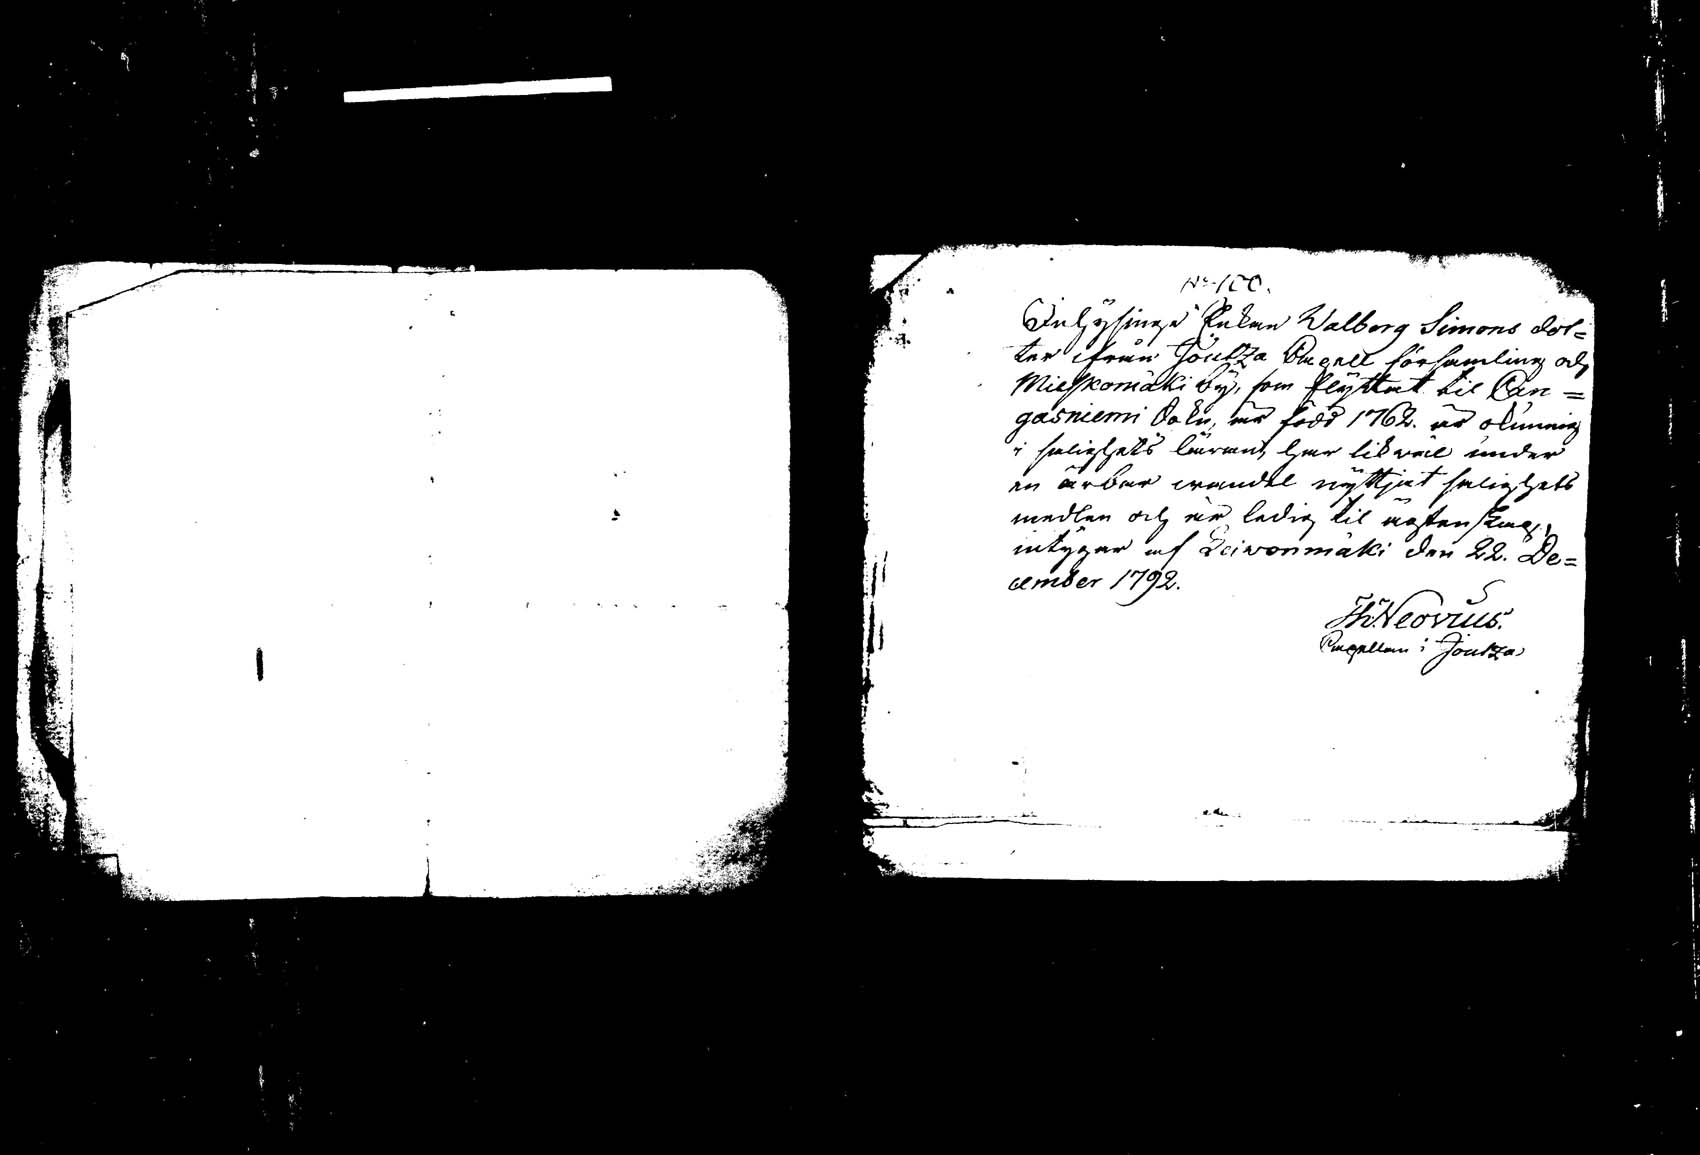 No 100.
Inhysings Enkan Walborg Simons dot=
ter ifrån Joutza Capell församling och
Mieskomäki by, som flyttat til Can=
gasniemi Sokn, är född 1762. är okunnig
i salighets läran, har likwäl under
en ärbar wandel nyttjat salighets
medlen och är ledig til ägtenskap,
intygar af Leivonmäki den 22. De=
cember 1792.
Th. Neovius.
Capellan i Joutza